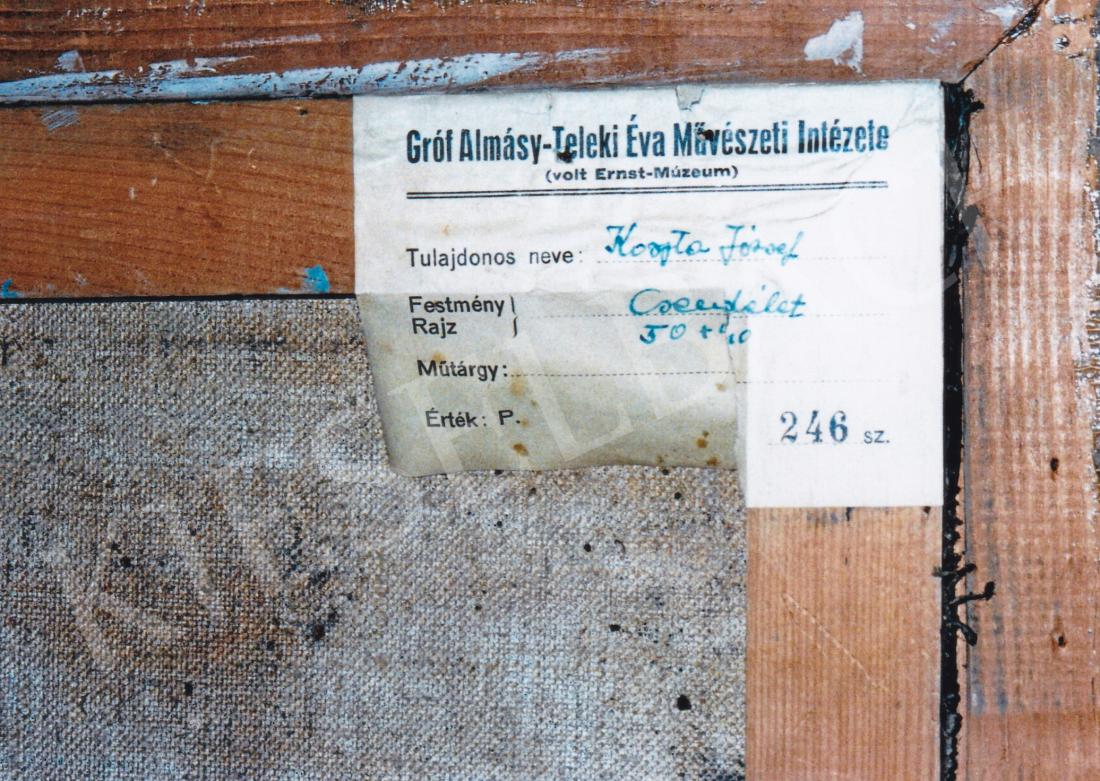 Gróf Almásy-Teleki Éva Művészeti Intézete
(volt Ernst-Múzeum)
Tulajdonos neve: Koszta József
Festmény } Csendélet
Rajz 50+40
Műtárgy:
Érték: P.
246 sz.